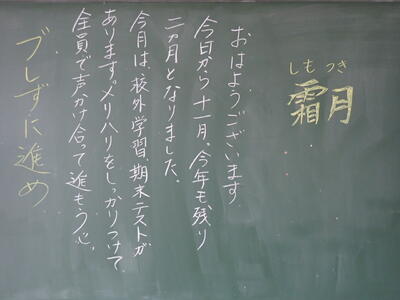 しもつき
霜月
おはようございます
今日から十一月。今年も残り
二ヵ月となりました。
今月は、校外学習、期末テストが
あります。メリハリをしっかりつけて
全員で声かけ合って進もう!
ブレずに進め